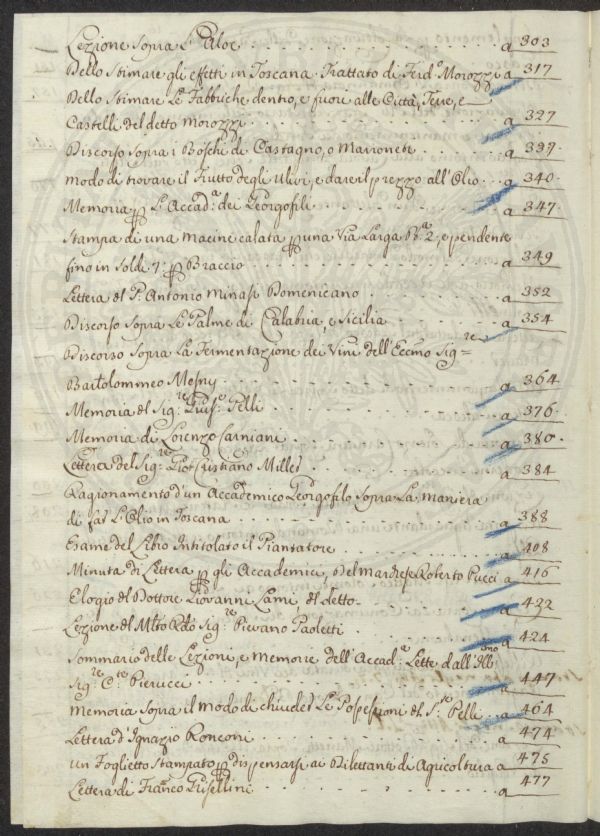 Lezione Sopra L'Aloe . . . . a 303
Dello Stimare gli effetti in Toscana. Trattato di Ferd.º Morozzi a 317
Dello Stimare Le Fabbriche dentro, e fuori alle Città, Terre, e
Castelli del detto Morozzi . . . . a 327
Discorso Sopra i Boschi di Castagno, o Marronete . . . . a 337
Modo di trovare il Frutto degli Ulivi, e dare il prezzo all'Olio . . a 340
Memoria p L'Accad.ª dei Georgofili . . . . a 347
Stampa di una macine calata p una Via Larga B.ª 2, e pendente
fino in Soldi 7. p Braccio . . . . a 349
Lettera del P. Antonio Minasi Domenicano . . . . a 352
Discorso Sopra Le Palme di Calabria, e Sicilia . . . . a 354
Discorso Sopra La Fermentazione dei Vini dell'Eccmo Sig.re
Bartolommeo Mesny . . . . a 364
Memoria del Sig.re Giusp.e Pelli . . . . a 376
Memoria di Lorenzo Carniani . . . . a 380
Lettera del Sig.re Gio: Cristiano Milled . . . . a 384
Ragionamento d'un Accademico Georgofilo Sopra La Maniera
di far L'Olio in Toscana . . . . a 388
Esame del Libro Intitolato il Piantatore . . . . a 408
Minuta di Lettera p gli Accademici, Del Marchese Roberto Pucci a 416
Elogio del Dottore Giovanni Lami, del detto . . . . a 422
Lezione del Mlto Rdo Sig.re Pievano Paoletti . . . . a 424
Sommario delle Lezioni, e Memorie dell'Accad.ª Lette dall'Ill.mo
Sig.re C.te Pierucci . . . . a 447
Memoria Sopra il Modo di chiuder Le Possessioni del S.re Pelli . . a 464
Lettera d'Ignazio Ronconi . . . . a 474
Un Foglietto Stampato p dispensarsi ai Dilettanti di Agricoltura a 475
Lettera di Franco Grisellini . . . . a 477